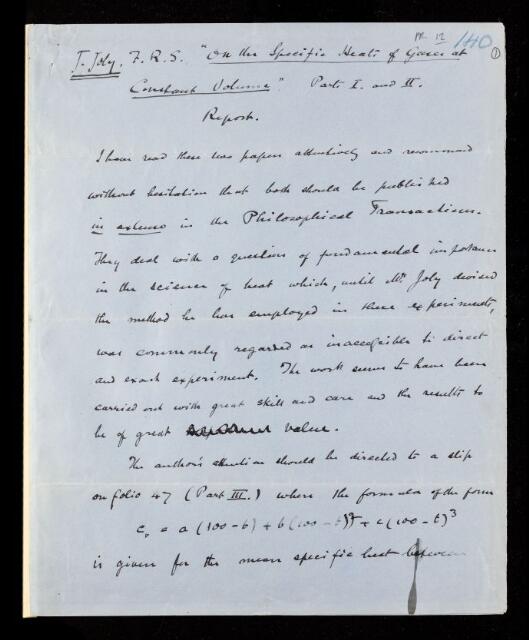 RR 12 140 1
J. Joly, F.R.S. "On the Specific Heats of Gases at
Constant Volume" Parts I. and II.
Report.
I have read these two papers attentively and recommend
without hesitation that both should be published
in extenso in the Philosophical Transactions.
They deal with a question of fundamental importance
in the science of heat which, until Mr Joly devised
the method he has employed in these experiments,
was commonly regarded as inaccessible to direct
and exact experiment. The work seems to have been
carried out with great skill and care and the results to
be of great value.
The author's attention should be directed to a slip
on folio 47 (Part III.) where the formula of the form
cᵥ = a (100-t) + b(100-t)² + c(100-t)³
is given for the mean specific heat between